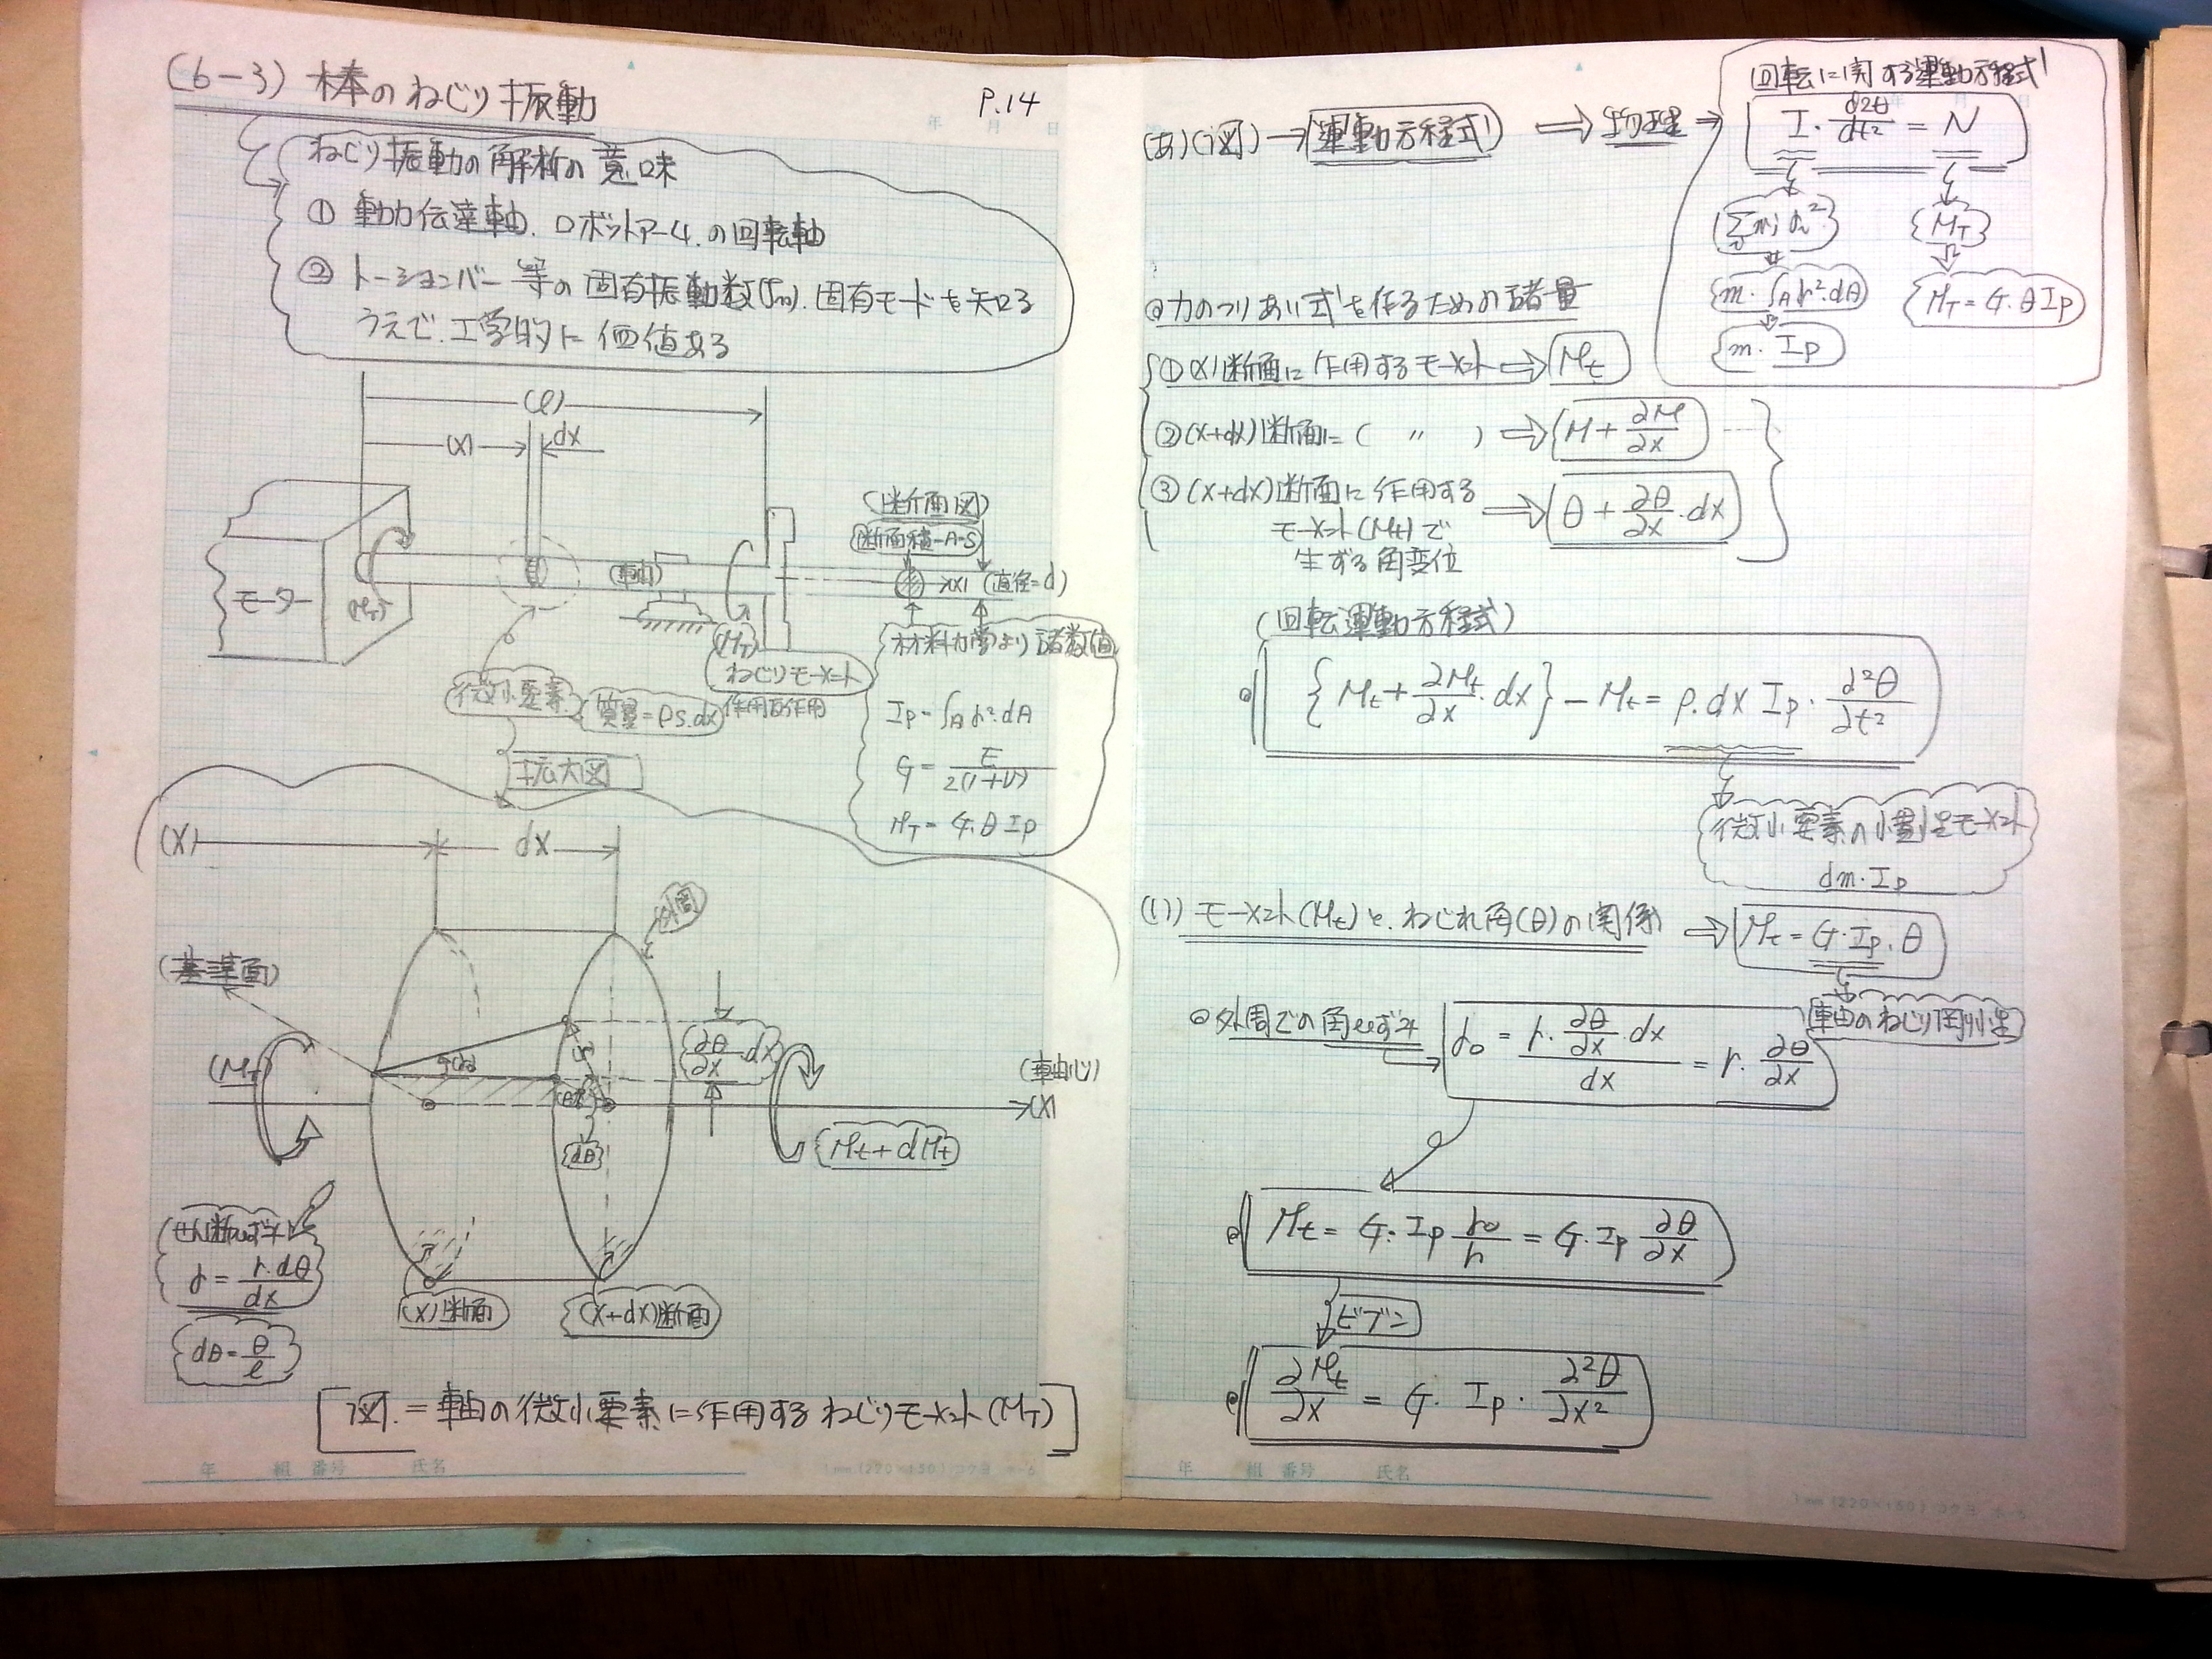 (6-3) 棒のねじり振動
P.14
ねじり振動の解析の意味
① 動力伝達軸、ロボットアーム、の回転軸
② トーションバー等の固有振動数(fn)、固有モードを知る
うえで、工学的に価値ある
(l)
(x)
dx
(断面図)
断面積=A=S
モーター
(MT)
(軸)
(x)
(直径=d)
(MT)
ねじりモーメント
作用反作用
微小要素
質量=ρs.dx
拡大図
材料力学より諸数値
Ip=∫A r².dA
G = E/2(1+ν)
MT = G.θ Ip
(x)
dx
外周
(基準面)
(MT)
∂θ/∂x.dx
(軸心)
(x)
dθ
Mt+dMt
せん断ひずみ
γ = r.dθ/dx
dθ = θ/l
(x)断面
(x+dx)断面
[図.=軸の微小要素に作用するねじりモーメント(MT)]
年 組 番号 氏名
1mm (270×150) コクヨ ホ-5
年 月 日
(あ)(図) → 運動方程式 ⇒ 物理 ⇒
回転に関する運動方程式
I・d²θ/dt² = N
Σmi ri²
MT
m・∫A r².dθ
MT = G.θ Ip
m・Ip
◎力のつりあい式を作るための諸量
① (x)断面に作用するモーメント ⇒ Mt
② (x+dx)断面に( 〃 ) ⇒ M + ∂M/∂x
③ (x+dx)断面に作用する
モーメント(Mt)で
生ずる角変位
⇒ θ + ∂θ/∂x.dx
(回転運動方程式)
{Mt + ∂Mt/∂x.dx} − Mt = ρ.dx Ip・∂²θ/∂t²
微小要素の慣性モーメント
dm・Ip
(1) モーメント(Mt)と、ねじれ角(θ)の関係 ⇒ Mt = G・Ip.θ
軸のねじり剛性
◎外周での角ひずみ
γo = r.∂θ/∂x.dx / dx = r.∂θ/∂x
Mt = G・Ip γo/r = G.Ip ∂θ/∂x
ビブン
∂Mt/∂x = G・Ip・∂²θ/∂x²
年 組 番号 氏名
1mm (220×150) コクヨ ホ-5